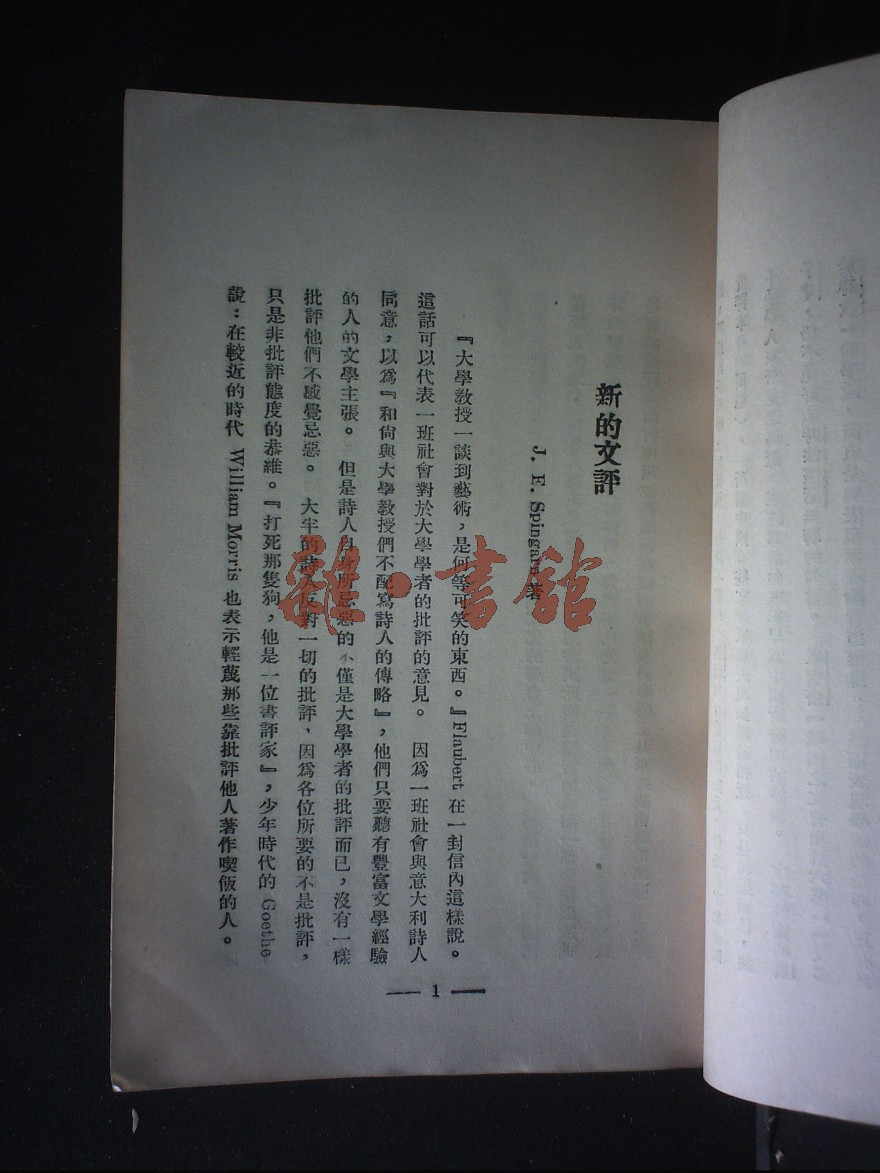 新的文評
J. E. Spingarn 著
『大學教授一談到藝術，是何等可笑的東西。』Flaubert 在一封信內這樣說。
這話可以代表一班社會對於大學學者的批評的意見。 因爲一班社會與意大利詩人
同意，以爲『和尙與大學教授們不配寫詩人的傳略』，他們只要聽有豐富文學經驗
的人的文學主張。 但是詩人自身所忌惡的不僅是大學學者的批評而已，沒有一樣
批評他們不感覺忌惡。 大半的詩人反對一切的批評，因爲各位所要的不是批評，
只是非批評態度的恭維。『打死那隻狗，他是一位書評家』，少年時代的 Goethe
說：在較近的時代 William Morris 也表示輕蔑那些靠批評他人著作喫飯的人。
— 1 —
雜·書館